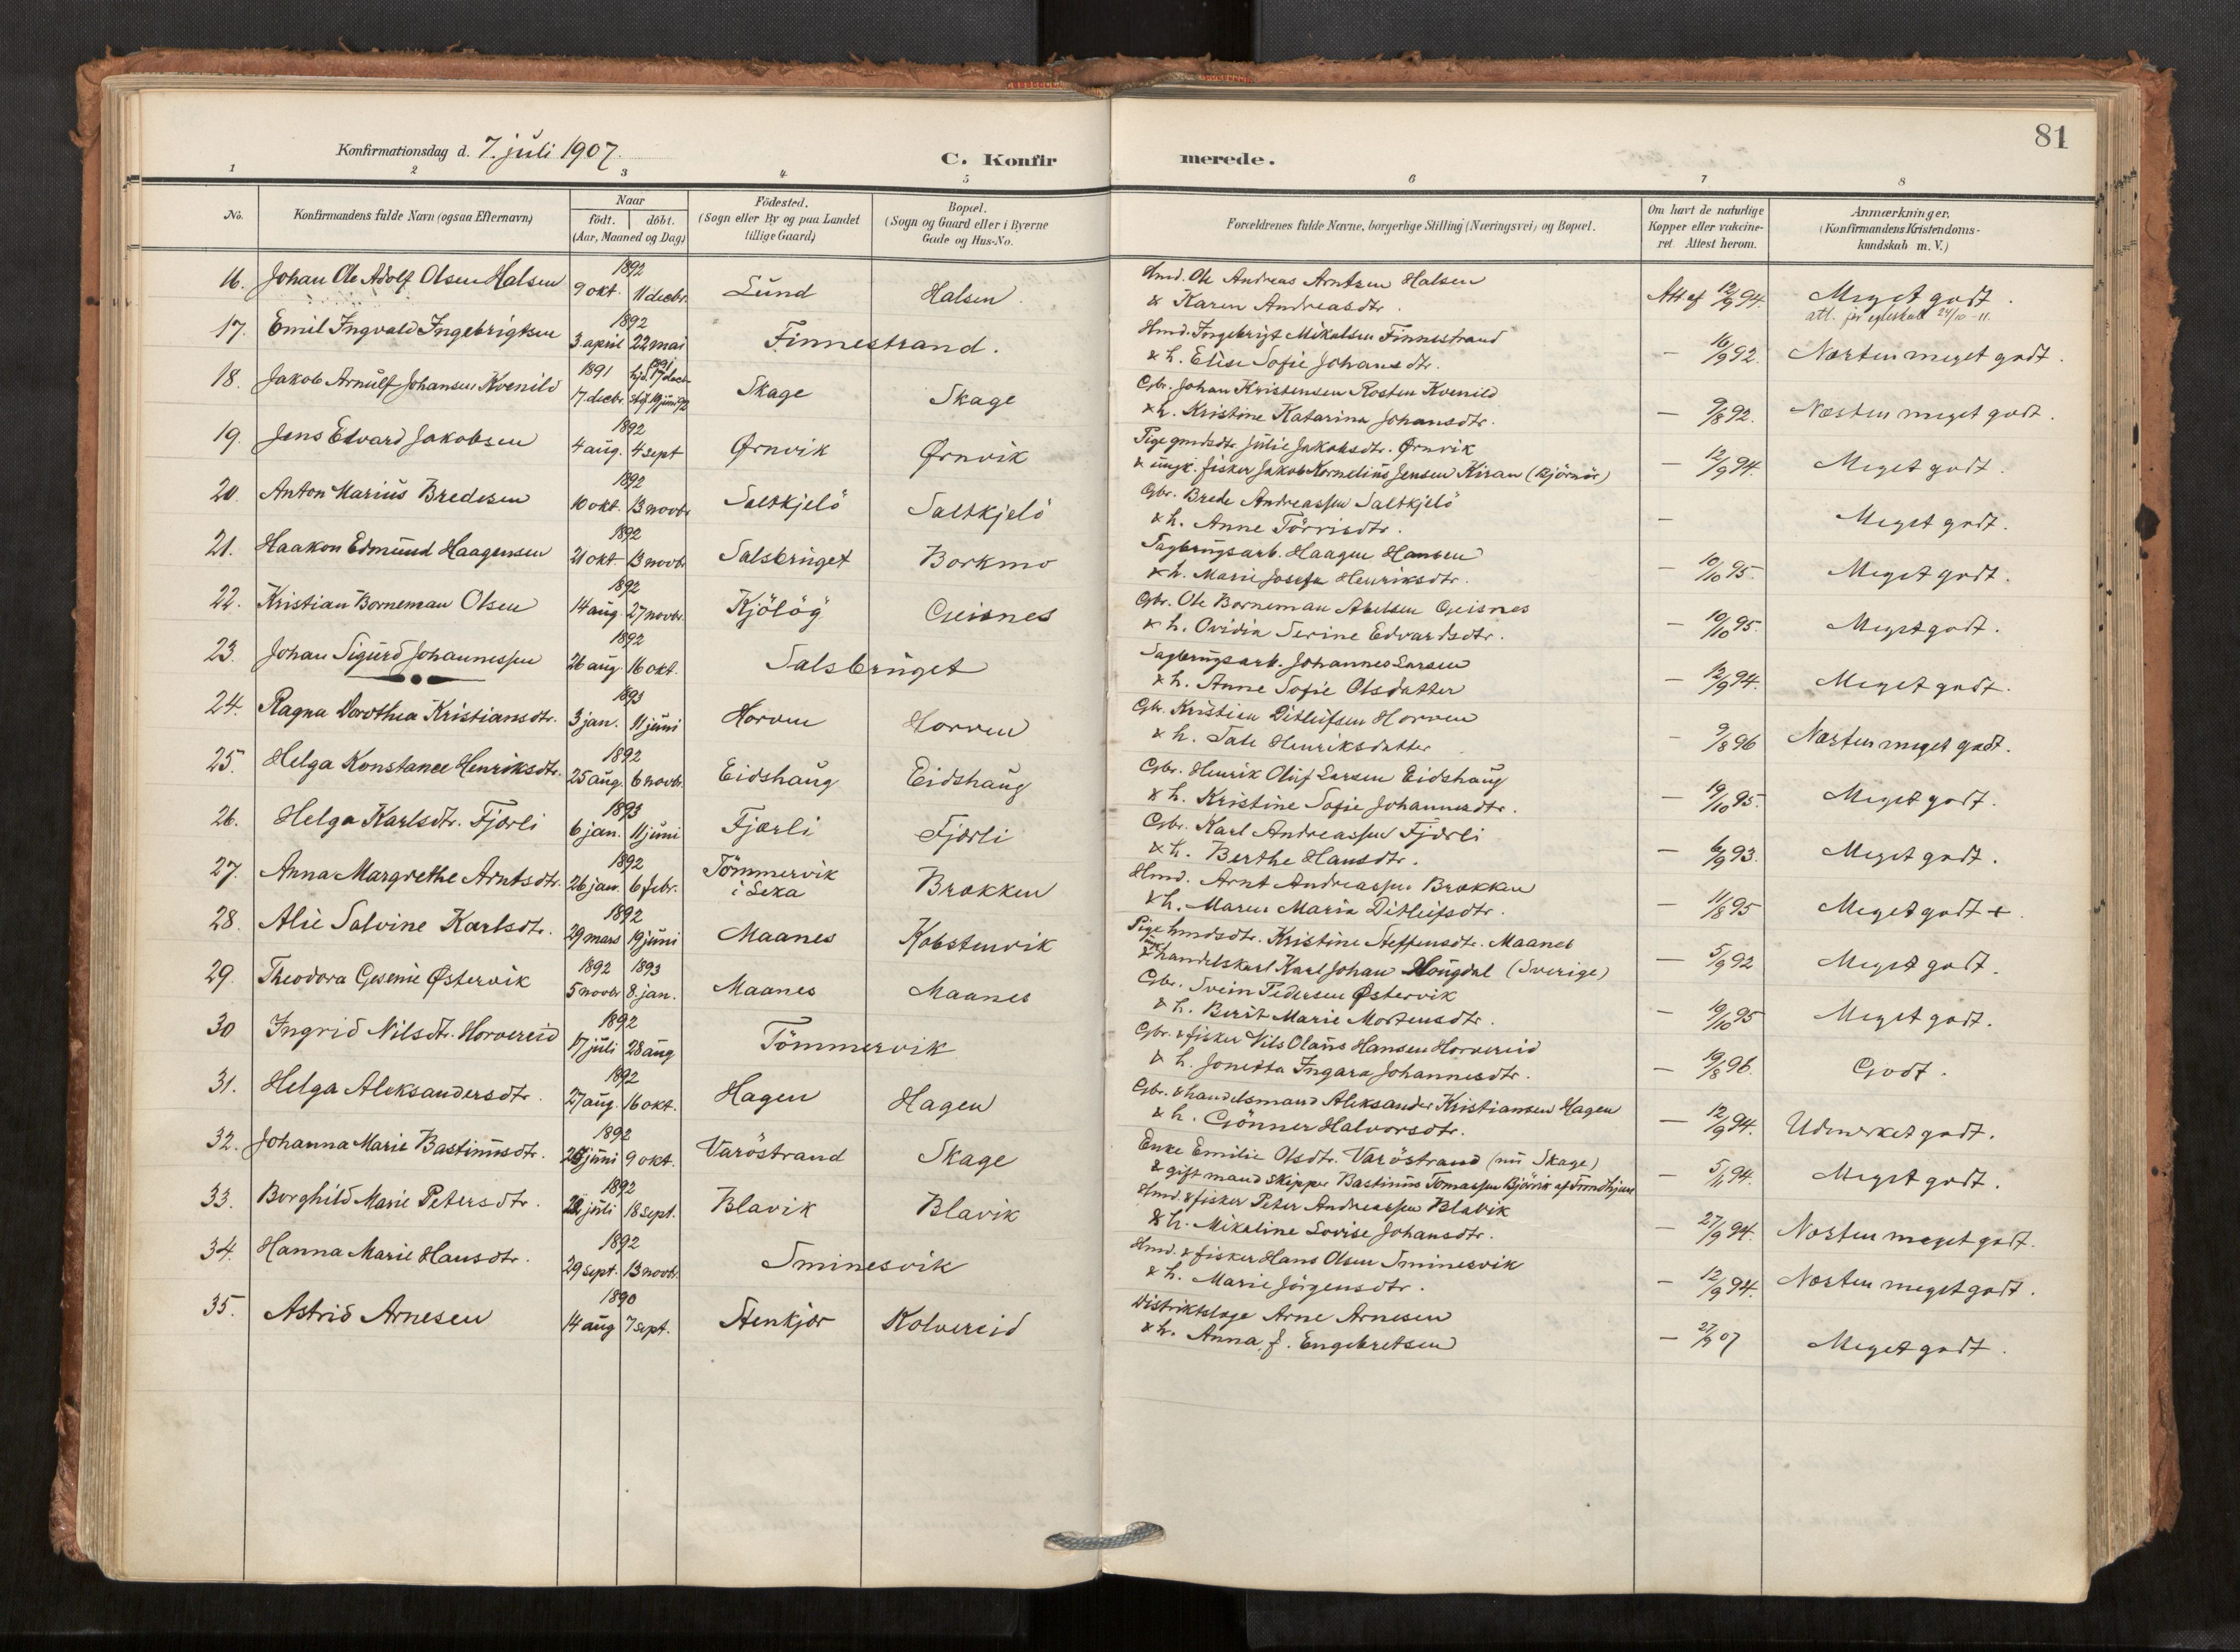 81
Konfirmationsdag d. 7. juli 1907.
C. Konfirmerede.
1 2 3 4 5 6 7 8
No. Konfirmandens fulde Navn (ogsaa Efternavn) Naar født. døbt. (Aar, Maaned og Dag) Fødested. (Sogn eller By og paa Landet tillige Gaard) Bopæl. (Sogn og Gaard eller i Byerne Gade og Hus-No. Forældrenes fulde Navne, borgerlige Stilling (Næringsvei) og Bopæl. Om havt de naturlige Kopper eller vakcineret. Attest herom. Anmærkninger. (Konfirmandens Kristendomskundskab m. V.)
16. Johan Ole Adolf Olsen Halsen 1892 9 okt. 11 decbr. Lund Halsen Hmd. Ole Andreas Arntsen Halsen
& Karen Andreasdtr. Att. af 12/9 94. Meget godt.
att. 24/10-11.
17. Emil Ingvald Ingebrigtsen 1892 3. april 22 mai Finnestrand. Hmd. Ingebrigt Mikalsen Finnestrand
& h. Elise Sofie Johansdtr. — 16/9 92. Næsten meget godt.
18. Jakob Arnulf Johansen Kvenild 1891 17. decbr. hjd. 17 decbr. 1891 stf. 19 juni 92 Skage Skage Gbr. Johan Kristensen Rosten Kvenild
& h. Kristine Katarina Johansdtr. — 9/8 92. Næsten meget godt.
19. Jens Edvard Jakobsen 1892 4 aug. 4 sept Ørnvik Ørnvik Pige gmdsdtr. Julie Jakobsdtr. Ørnvik
& ungk. fisker Jakob Kornelius Jensen Kiran (Bjørnør) — 12/9 94. Meget godt.
20. Anton Marius Bredesen 1892 10 okt. 13 novbr Saltkjelö Saltkjelö Gbr. Brede Andreassen Saltkjelö
& h. Anne Törrisdtr. — Meget godt.
21. Haakon Edmund Haagensen 1892 21 okt. 13 novbr Salsbruget Borkmo Sagbrugsarb. Haagen Hansen
& h. Marie Josefa Henriksdtr. — 10/10 95. Meget godt.
22. Kristian Borneman Olsen 1892 14 aug. 27 novbr. Kjölög Geisnes Gbr. Ole Borneman Abelsen Geisnes
& h. Ovidia Serine Edvardsdtr. — 10/10 95. Meget godt.
23. Johan Sigurd Johannessen 1892 26 aug. 16 okt. Salsbruget Sagbrugsarb. Johannes Larsen
& h. Anne Sofie Olsdatter — 12/9 94. Meget godt.
24. Ragna Dorothea Kristiansdtr. 1893 3 jan. 11 juni Horven Horven Gbr. Kristian Ditlefsen Horven
& h. Tale Henriksdatter — 9/8 96 Næsten meget godt.
25. Helga Konstance Henriksdtr. 1892 25 aug. 6 novbr. Eidshaug Eidshaug Gbr. Henrik Oluf Larsen Eidshaug
& h. Kristine Sofie Johannesdtr. — 19/10 95. Meget godt.
26. Helga Karlsdtr. Fjærli 1893 6 jan. 11 juni Fjærli Fjærli Gbr. Karl Andreassen Fjærli
& h. Berthe Hansdtr. — 6/9 93. Meget godt.
27. Anna Margrethe Arntsdtr. 1892 26 jan. 6 febr. Tömmervik i Leka Brakken Hmd. Arnt Andreassen Brakken
& h. Maren Maria Ditlefsdtr. — 11/8 95 Meget godt +.
28. Alie Salvine Karlsdtr. 1892 29 mars 19 juni Maanes Kobstenvik Pige hmdsdtr. Kristine Steffensdtr. Maanes
& ungk. handelskarl Karl Johan Hougdal (Sverige) — 5/9 92 Meget godt.
29. Theodora Gesenie Østervik 1892 5 novbr 1893 8. jan. Maanes Maanes Gbr. Svein Pedersen Østervik
& h. Berit Marie Mortensdtr. — 19/10 95 Meget godt.
30 Ingrid Nilsdtr. Horvereid 1892 17 juli 28 aug Tömmervik Gbr. & fisker Nils Olaus Hansen Horvereid
& h. Jonetta Ingara Johannesdtr. — 19/8 96. Godt.
31. Helga Aleksandersdtr. 1892 27 aug. 16 okt. Hagen Hagen Gbr. & handelsmand Aleksander Kristiansen Hagen
& h. Gönner Halvorsdtr. — 12/9 94. Udmerket godt.
32. Johanna Marie Bastiansdtr. 1892 juni 9 okt. Varöstrand Skage Enke Emilie Olsdtr. Varöstrand (nu Skage)
& gift mand skipper Bastinus Tomassen Bjørvik af Trondhjem — 5/11 94. Meget godt.
33. Borghild Marie Petersdtr. 1892 juli 18 sept. Blavik Blavik Hmd. & fisker Peter Andreassen Blavik
& h. Mikaline Lovise Johansdtr. — 27/9 94. Næsten meget godt.
34. Hanna Marie Hansdtr. 1892 29 sept. 13 novbr. Sminesvik Hmd. & fisker Hans Olsen Sminesvik
& h. Marie Jörgensdtr. — 12/9 94. Næsten meget godt.
35. Astrid Arnesen 1890 14 aug 7 sept. Stenkjær Kolvereid Distriktslæge Arne Arnesen
& h. Anna, f. Engebretsen — 07 Meget godt.